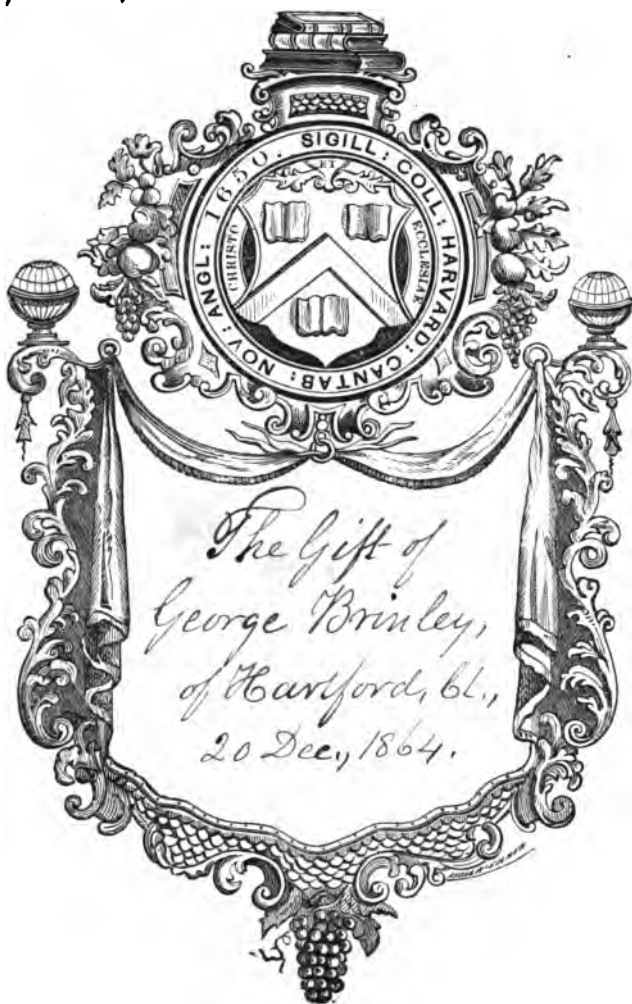 SIGILL: COLL: HARVARD: CANTAB: NOV: ANGL: 1650.
ET
CHRISTO
ECCLESIAE
The Gift of
George Brinley,
of Hartford, Ct.,
20 Dec., 1864.